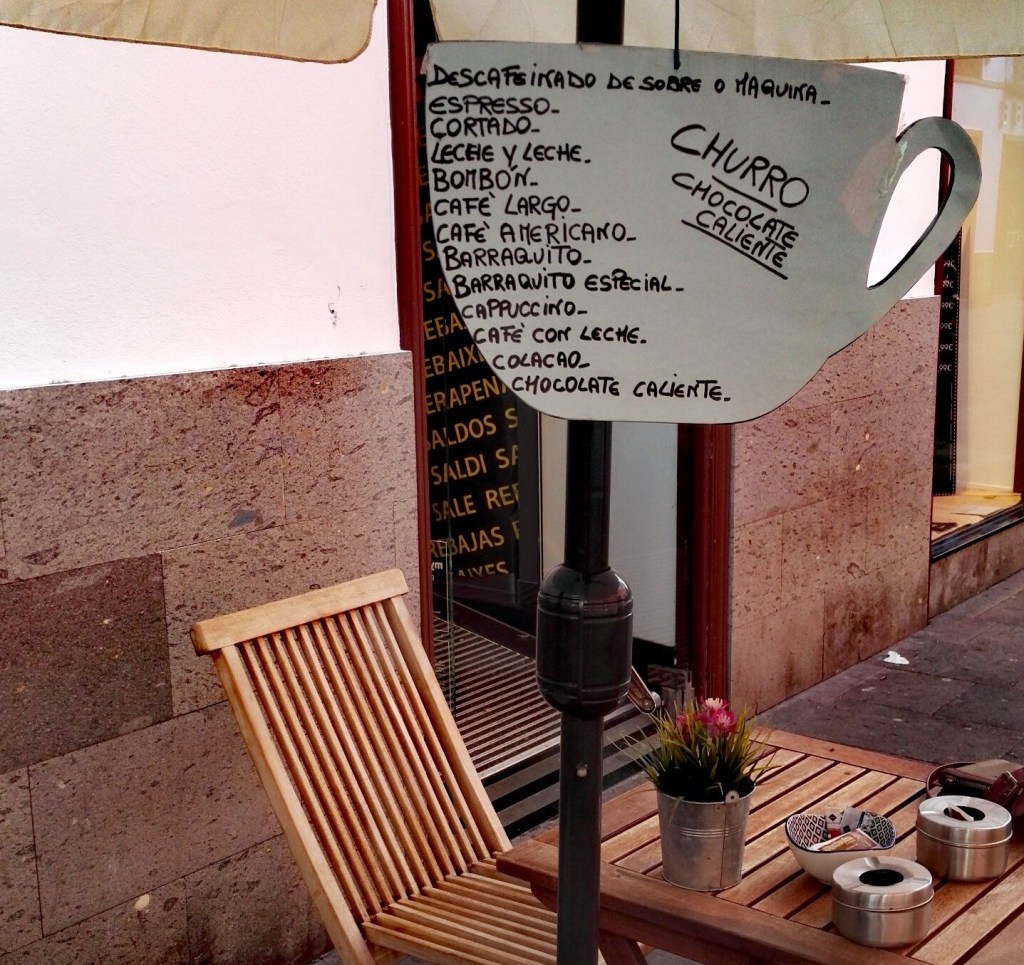 DESCAFEINADO DE SOBRE O MAQUINA_
ESPRESSO_
CORTADO_
LECHE Y LECHE_
BOMBÓN_
CAFÈ LARGO_
CAFÈ AMERICANO_
BARRAQUITO_
BARRAQUITO ESPECIAL_
CAPPUCCINO_
CAFÈ CON LECHE_
COLACAO_
CHOCOLATE CALIENTE_
CHURRO
CHOCOLATE
CALIENTE
SALDOS S
SALDI SA
SALE REB
REBAJAS
99€
99€
99€
99€
99€
99€